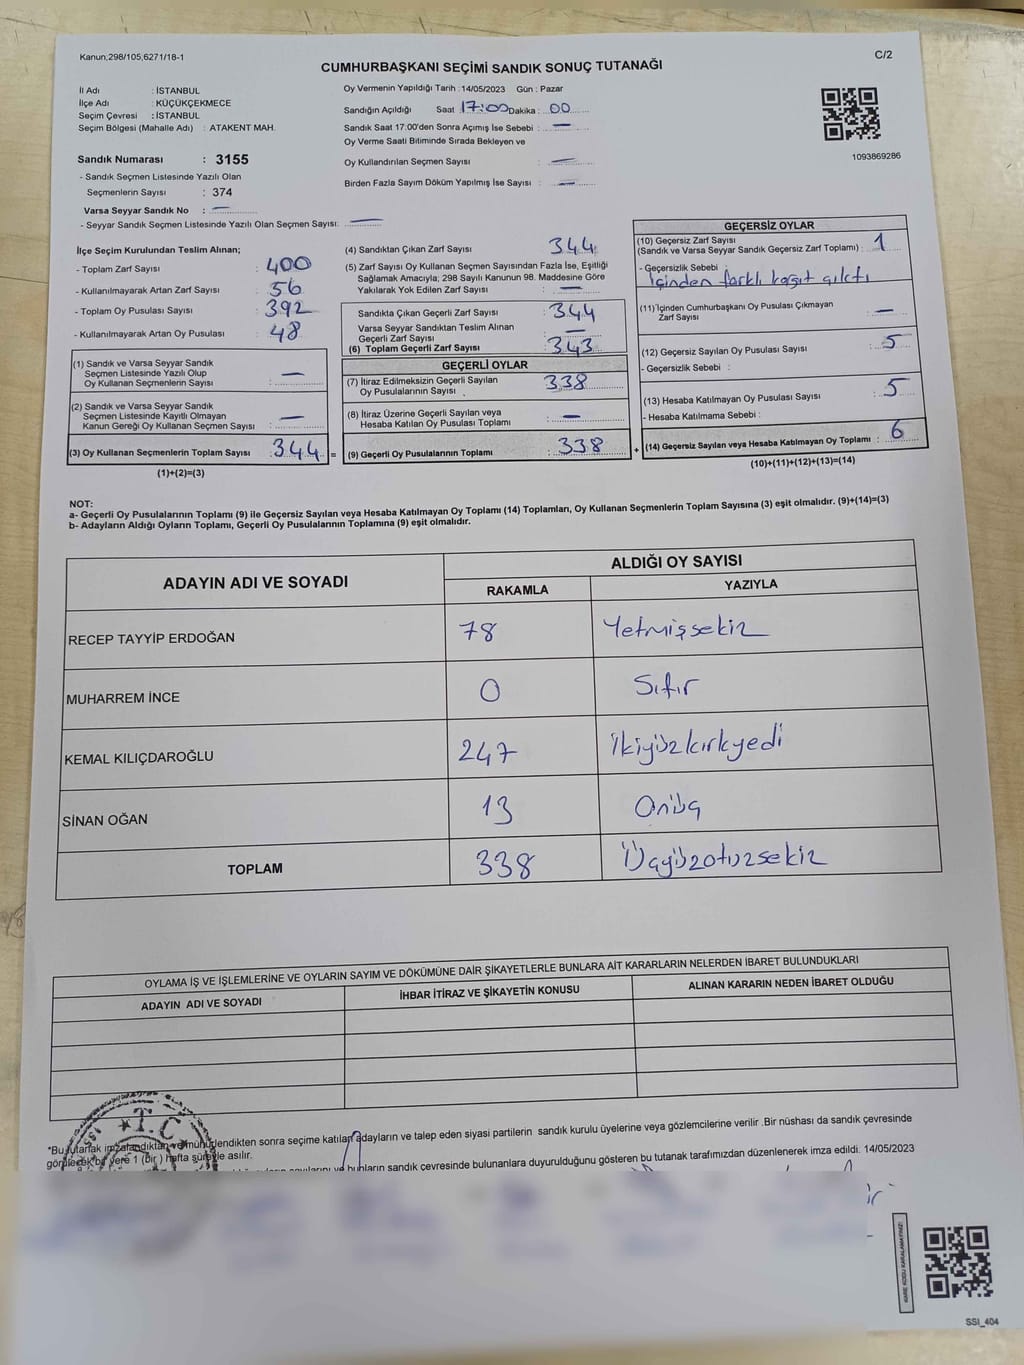 Kanun;298/105;6271/18-1
C/2
CUMHURBAŞKANI SEÇİMİ SANDIK SONUÇ TUTANAĞI
İl Adı : İSTANBUL
İlçe Adı : KÜÇÜKÇEKMECE
Seçim Çevresi : İSTANBUL
Seçim Bölgesi (Mahalle Adı) : ATAKENT MAH.
Sandık Numarası : 3155
- Sandık Seçmen Listesinde Yazılı Olan
Seçmenlerin Sayısı : 374
Varsa Seyyar Sandık No : —
- Seyyar Sandık Seçmen Listesinde Yazılı Olan Seçmen Sayısı: —
Oy Vermenin Yapıldığı Tarih : 14/05/2023 Gün : Pazar
Sandığın Açıldığı Saat 17:00 Dakika : 00
Sandık Saat 17:00'den Sonra Açımış İse Sebebi : —
Oy Verme Saati Bitiminde Sırada Bekleyen ve
Oy Kullandırılan Seçmen Sayısı : —
Birden Fazla Sayım Döküm Yapılmış İse Sayısı : —
1093869286
İlçe Seçim Kurulundan Teslim Alınan;
- Toplam Zarf Sayısı : 400
- Kullanılmayarak Artan Zarf Sayısı : 56
- Toplam Oy Pusulası Sayısı : 392
- Kullanılmayarak Artan Oy Pusulası : 48
(1) Sandık ve Varsa Seyyar Sandık
Seçmen Listesinde Yazılı Olup
Oy Kullanan Seçmenlerin Sayısı : —
(2) Sandık ve Varsa Seyyar Sandık
Seçmen Listesinde Kayıtlı Olmayan
Kanun Gereği Oy Kullanan Seçmen Sayısı : —
(3) Oy Kullanan Seçmenlerin Toplam Sayısı : 344 =
(1)+(2)=(3)
(4) Sandıktan Çıkan Zarf Sayısı : 344
(5) Zarf Sayısı Oy Kullanan Seçmen Sayısından Fazla İse, Eşitliği
Sağlamak Amacıyla; 298 Sayılı Kanunun 98. Maddesine Göre
Yakılarak Yok Edilen Zarf Sayısı : —
Sandıkta Çıkan Geçerli Zarf Sayısı : 344
Varsa Seyyar Sandıktan Teslim Alınan
Geçerli Zarf Sayısı : —
(6) Toplam Geçerli Zarf Sayısı : 343
GEÇERLİ OYLAR
(7) İtiraz Edilmeksizin Geçerli Sayılan
Oy Pusulalarının Sayısı : 338
(8) İtiraz Üzerine Geçerli Sayılan veya
Hesaba Katılan Oy Pusulası Toplamı : —
(9) Geçerli Oy Pusulalarının Toplamı : 338 +
GEÇERSİZ OYLAR
(10) Geçersiz Zarf Sayısı
(Sandık ve Varsa Seyyar Sandık Geçersiz Zarf Toplamı) : 1
- Geçersizlik Sebebi
: İçinden farklı kağıt çıktı
(11) İçinden Cumhurbaşkanı Oy Pusulası Çıkmayan
Zarf Sayısı : —
(12) Geçersiz Sayılan Oy Pusulası Sayısı : 5
- Geçersizlik Sebebi :
(13) Hesaba Katılmayan Oy Pusulası Sayısı : 5
- Hesaba Katılmama Sebebi :
(14) Geçersiz Sayılan veya Hesaba Katılmayan Oy Toplamı : 6
(10)+(11)+(12)+(13)=(14)
NOT:
a- Geçerli Oy Pusulalarının Toplamı (9) ile Geçersiz Sayılan veya Hesaba Katılmayan Oy Toplamı (14) Toplamları, Oy Kullanan Seçmenlerin Toplam Sayısına (3) eşit olmalıdır. (9)+(14)=(3)
b- Adayların Aldığı Oyların Toplamı, Geçerli Oy Pusulalarının Toplamına (9) eşit olmalıdır.
ADAYIN ADI VE SOYADI ALDIĞI OY SAYISI
RAKAMLA YAZIYLA
RECEP TAYYİP ERDOĞAN 78 Yetmişsekiz
MUHARREM İNCE 0 Sıfır
KEMAL KILIÇDAROĞLU 247 İkiyüzkırkyedi
SİNAN OĞAN 13 Onüç
TOPLAM 338 Üçyüzotuzsekiz
OYLAMA İŞ VE İŞLEMLERİNE VE OYLARIN SAYIM VE DÖKÜMÜNE DAİR ŞİKAYETLERLE BUNLARA AİT KARARLARIN NELERDEN İBARET BULUNDUKLARI
ADAYIN ADI VE SOYADI İHBAR İTİRAZ VE ŞİKAYETİN KONUSU ALINAN KARARIN NEDEN İBARET OLDUĞU
T.C
*Bu tutanak imzalandıktan ve mühürlendikten sonra seçime katılan adayların ve talep eden siyasi partilerin sandık kurulu üyelerine veya gözlemcilerine verilir .Bir nüshası da sandık çevresinde
görülecek bir yere 1 (bir ) hafta süreyle asılır.
ve bunların sandık çevresinde bulunanlara duyurulduğunu gösteren bu tutanak tarafımızdan düzenlenerek imza edildi. 14/05/2023
KARE KODU KARALAMAYINIZ!
SSI_404